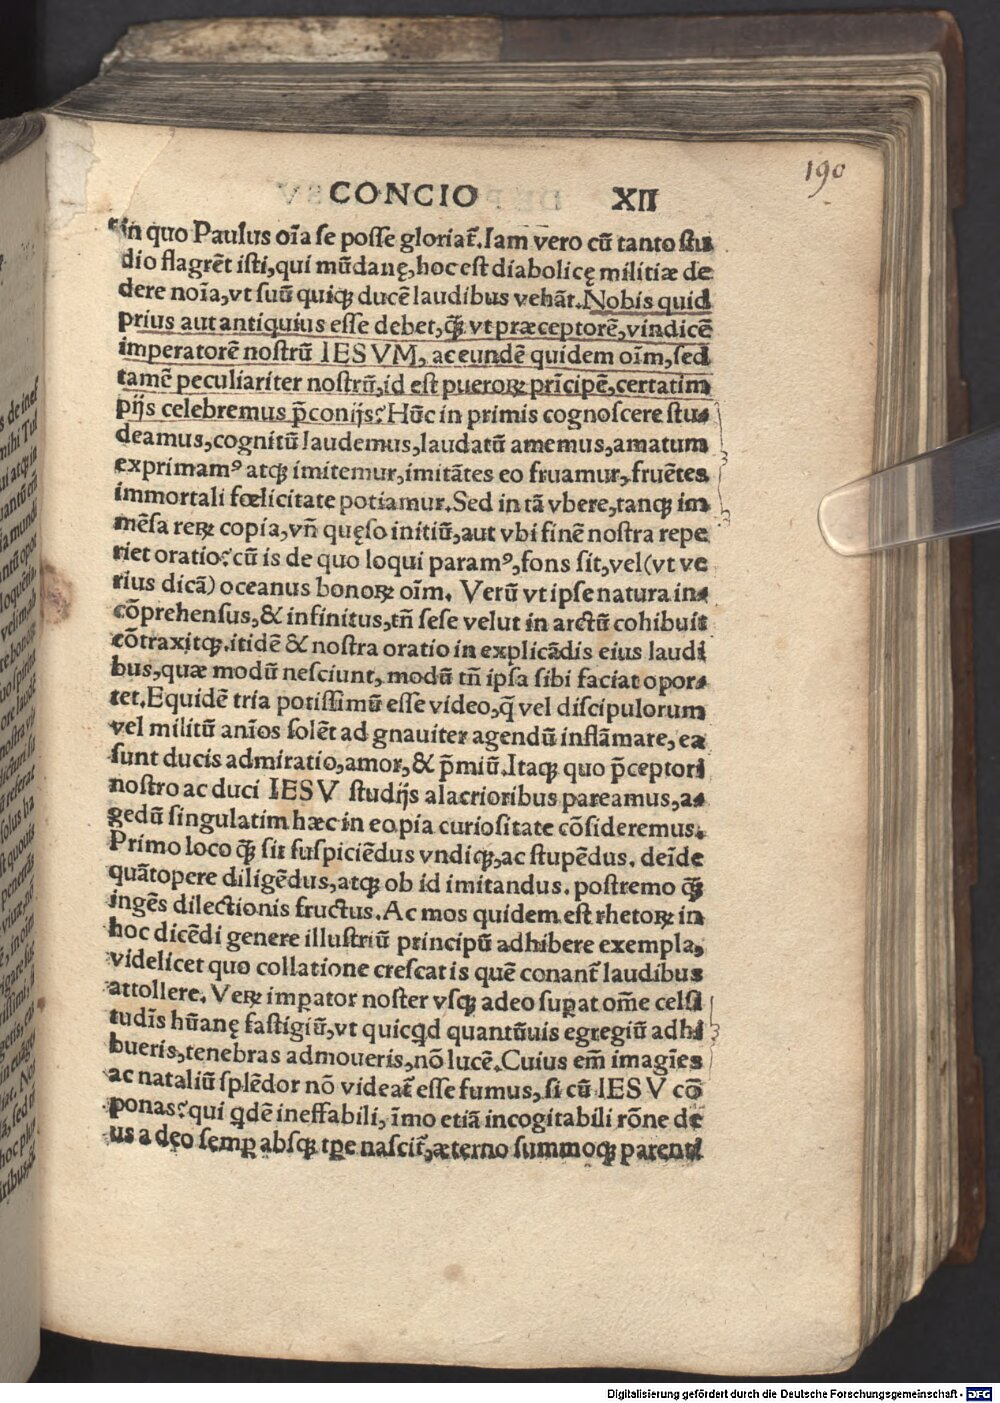 190
CONCIO XII
in quo Paulus oīa se posse gloriat᷑. Iam vero cū tanto stu
dio flagrēt isti, qui mūdanę, hoc est diabolicę militiæ de
dere noīa, vt suū quiqꝫ ducē laudibus vehāt. Nobis quid
prius aut antiquius esse debet, q̄ꝫ vt præceptorē, vindicē
imperatorē nostrū IESVM, ac eundē quidem oīm, sed
tamē peculiariter nostrū, id est pueroꝝ prīcipē, certatim
pijs celebremus p̄conijs? Hūc in primis cognoscere stu⸗
deamus, cognitū laudemus, laudatū amemus, amatum
exprimamꝰ atqꝫ imitemur, imitātes eo fruamur, fruētes
immortali fœlicitate potiamur. Sed in tā vbere, tanqꝫ im
mēsa reꝝ copia, vn̄ quęso initiū, aut vbi finē nostra repe
riet oratio? cū is de quo loqui paramꝰ, fons sit, vel (vt ve
rius dicā) oceanus bonoꝝ oīm. Verū vt ipse natura in⸗
cōprehensus, & infinitus, tn̄ sese velut in arctū cohibuit
cōtraxitqꝫ. itidē & nostra oratio in explicādis eius laudi
bus, quæ modū nesciunt, modū tn̄ ipsa sibi faciat opor⸗
tet. Equidē tria potissimū esse video, q̄ vel discipulorum
vel militū anīos solēt ad gnauiter agendū inflāmare, ea
sunt ducis admiratio, amor, & p̄miū. Itaqꝫ quo p̄ceptori
nostro ac duci IESV studijs alacrioribus pareamus, a⸗
gedū singulatim hæc in eo pia curiositate cōsideremus.
Primo loco q̄ꝫ sit suspiciēdus vndiqꝫ, ac stupēdus. deīde
quātopere diligēdus, atqꝫ ob id imitandus. postremo q̄ꝫ
ingēs dilectionis fructus. Ac mos quidem est rhetoꝝ in
hoc dicēdi genere illustriū principū adhibere exempla,
videlicet quo collatione crescat is quē conant᷑ laudibus
attollere. Veꝝ imꝑator noster vsqꝫ adeo suꝑat om̄e celsi
tudīs hūanę fastigiū, vt quicqd quantūuis egregiū adhi
bueris, tenebras admoueris, nō lucē. Cuius em̄ imagīes
ac nataliū splēdor nō videat᷑ esse fumus, si cū IESV cō
ponas? qui qdē ineffabili, īmo etiā incogitabili rōne de
us a deo semꝑ absqꝫ tꝑe nascit᷑, æterno summoqꝫ parenti
Digitalisierung gefördert durch die Deutsche Forschungsgemeinschaft - DFG